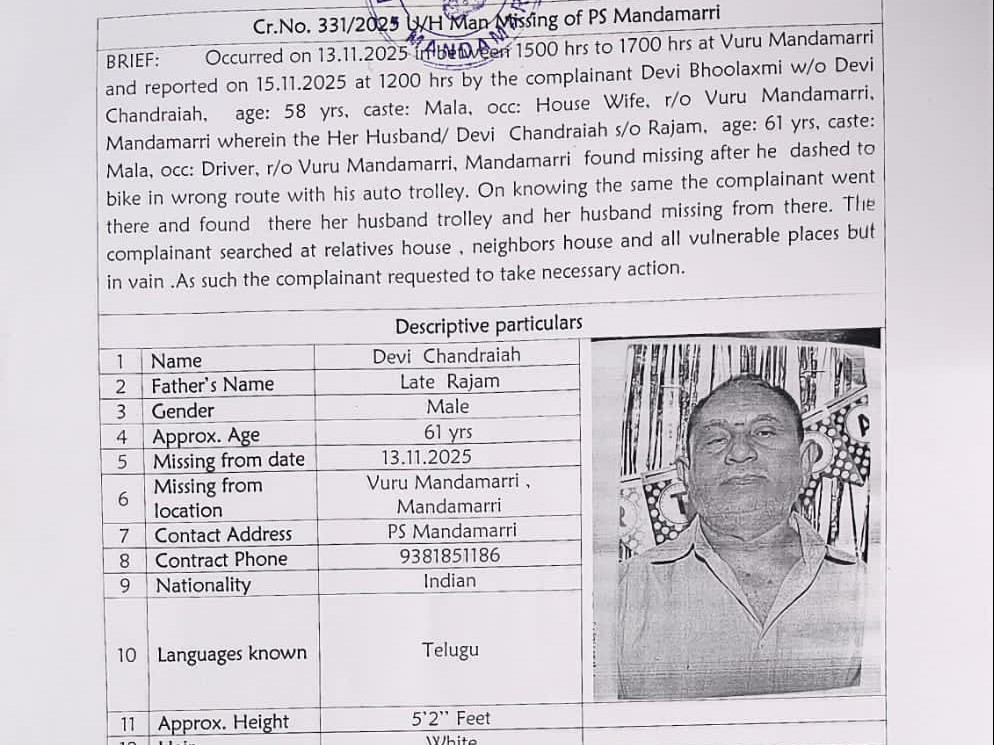 Cr.No. 331/2025 U/H Man Missing of PS Mandamarri
MANDAMAR
BRIEF: Occurred on 13.11.2025 in between 1500 hrs to 1700 hrs at Vuru Mandamarri
and reported on 15.11.2025 at 1200 hrs by the complainant Devi Bhoolaxmi w/o Devi
Chandraiah, age: 58 yrs, caste: Mala, occ: House Wife, r/o Vuru Mandamarri,
Mandamarri wherein the Her Husband/ Devi Chandraiah s/o Rajam, age: 61 yrs, caste:
Mala, occ: Driver, r/o Vuru Mandamarri, Mandamarri found missing after he dashed to
bike in wrong route with his auto trolley. On knowing the same the complainant went
there and found there her husband trolley and her husband missing from there. The
complainant searched at relatives house , neighbors house and all vulnerable places but
in vain .As such the complainant requested to take necessary action.
Descriptive particulars
1 Name Devi Chandraiah
2 Father's Name Late Rajam
3 Gender Male
4 Approx. Age 61 yrs
5 Missing from date 13.11.2025
6 Missing from location Vuru Mandamarri , Mandamarri
7 Contact Address PS Mandamarri
8 Contract Phone 9381851186
9 Nationality Indian
10 Languages known Telugu
11 Approx. Height 5'2'' Feet
White